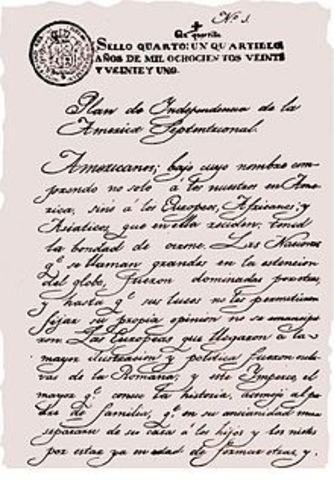 No. 1.
Un quartillo
SELLO QUARTO: UN QUARTILLO,
AÑOS DE MIL OCHOCIENTOS VEINTE
Y VEINTE Y UNO.
Plan de Independencia de la
America Septentrional.
Americanos; bajo cuyo nombre com-
prendo no solo á los nacidos en Ame-
rica, sinó á los Europeos, Africanos, y
Asiaticos que en ella residen; tened
la bondad de oirme. Las Naciones
q.e se llaman grandes en la estencion
del globo, fueron dominadas por otras,
y hasta q.e sus luces no les permitieron
fijar su propia opinion no se emancipa-
ron. Las Europeas que llegaron á la
mayor ilustracion y politica fueron escla-
vas de la Romana; y este Imperio, el
mayor q.e conoce la historia, asemejó al pa-
dre de familia, q.e en su ancianidad mira
separarse de su casa á los hijos y los nietos
por estar ya en edad de formar otras, y